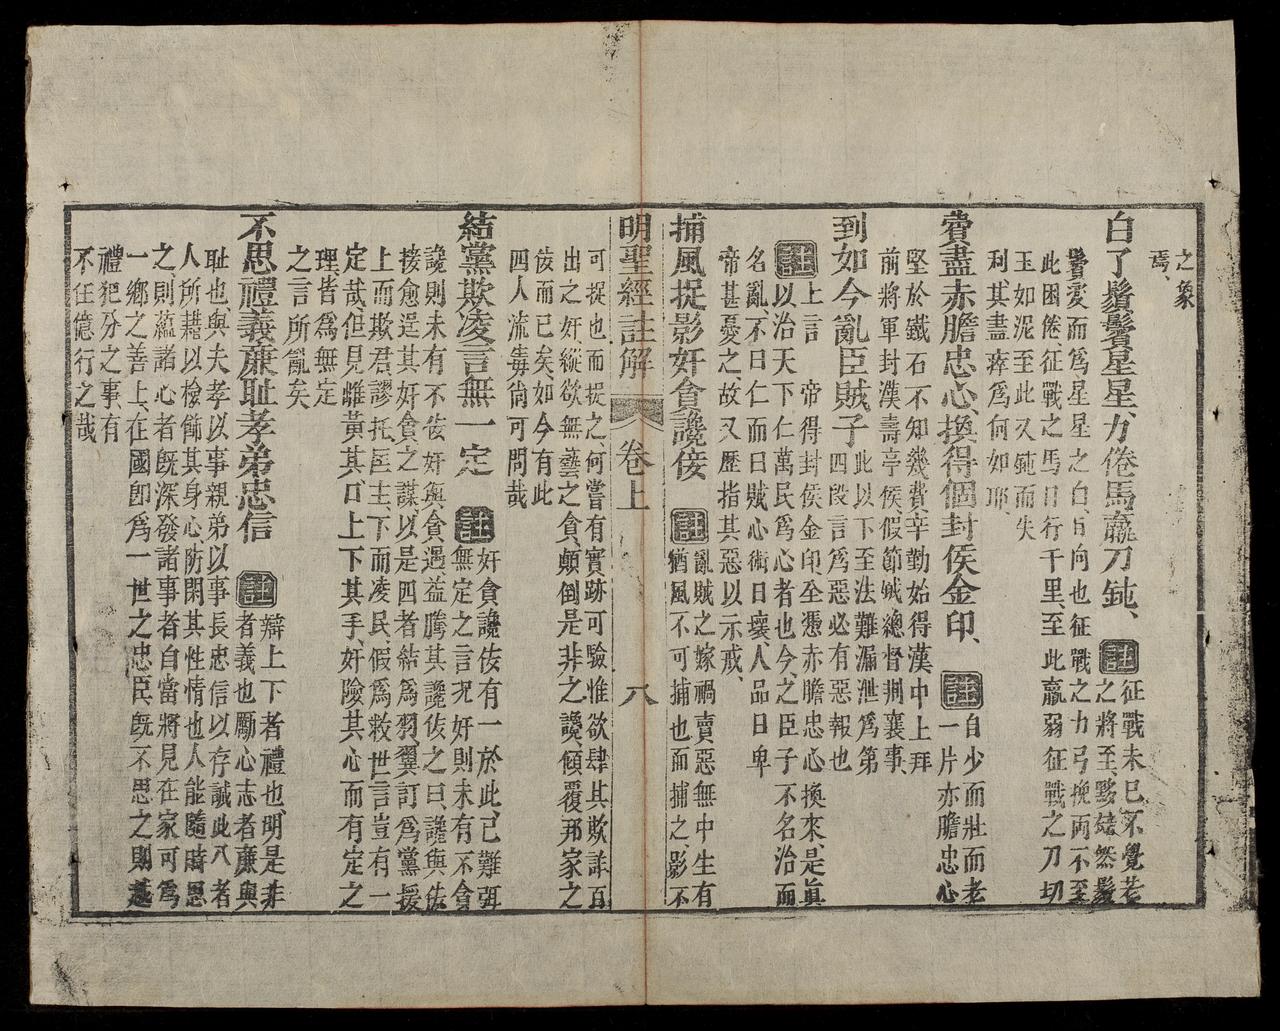 之象
焉、
白了鬚鬢星星力倦馬羸刀鈍、
註征戰未已不覺老
之將至、黟然鬚
鬢變而為星星之白、向也征戰之力弓挽兩至
此困倦征戰之馬日行千里、至此羸弱征戰之刀切
玉如泥至此又鈍而失
利其盡瘁為何如耶
費盡赤膽忠心換得個封侯金印、
註自少而壯而老
一片赤膽忠心
堅於鐵石不知幾費辛勤始得漢中上拜
前將軍封漢壽亭侯假節鉞總督荊襄事、
到如今亂臣賊子
此以下至法難漏泄為第
四段言為惡必有惡報也
註上言 帝得封侯金印全憑赤膽忠心換來、是眞
以治天下仁萬民為心者也、今之臣子不名治而
名亂、不曰仁而曰賊心術日壞、人品日卑
帝甚憂之、故又歷指其惡以示戒、
捕風捉影奸會讒佞
註亂賊之嫁禍賣惡無中生有
猶風不可捕也而捕之、影不
明聖經註解 卷上 八
可捉也而捉之、何嘗有實跡可驗惟欲肆其欺詐百
出之奸、縱欲無藝之貪、顛倒是非之讒、傾覆邦家之
佞而已矣、如今有此
四人流毒尚可問哉
結黨欺凌言無一定
註奸貪讒佞有一於此、已難弭
無定之言況奸則未有不貪
讒則未有不佞奸與貪遇益騰其讒佞之口、讒與佞
接愈逞其奸貪之謀、以是四者結為羽翼訂為黨援
上而欺君、謬托匡主、下而凌民、假為救世言豈有一
定哉、但見雌黃其口上下其手、奸險其心而有定之
理皆為無定
之言所亂矣
不思禮義廉耻孝弟忠信
註辯上下者禮也、明是非
者義也勵心志者廉與
耻也、與夫孝以事親弟以事長忠信以存誠此八者
人所藉以檢飾其身心、防閑其性情也人能隨時思
之、則蘊諸心者旣深發諸事者自當將見在家可為
一鄉之善士、在國卽為一世之忠臣旣不思之則越
禮犯分之事、有
不任憶行之哉